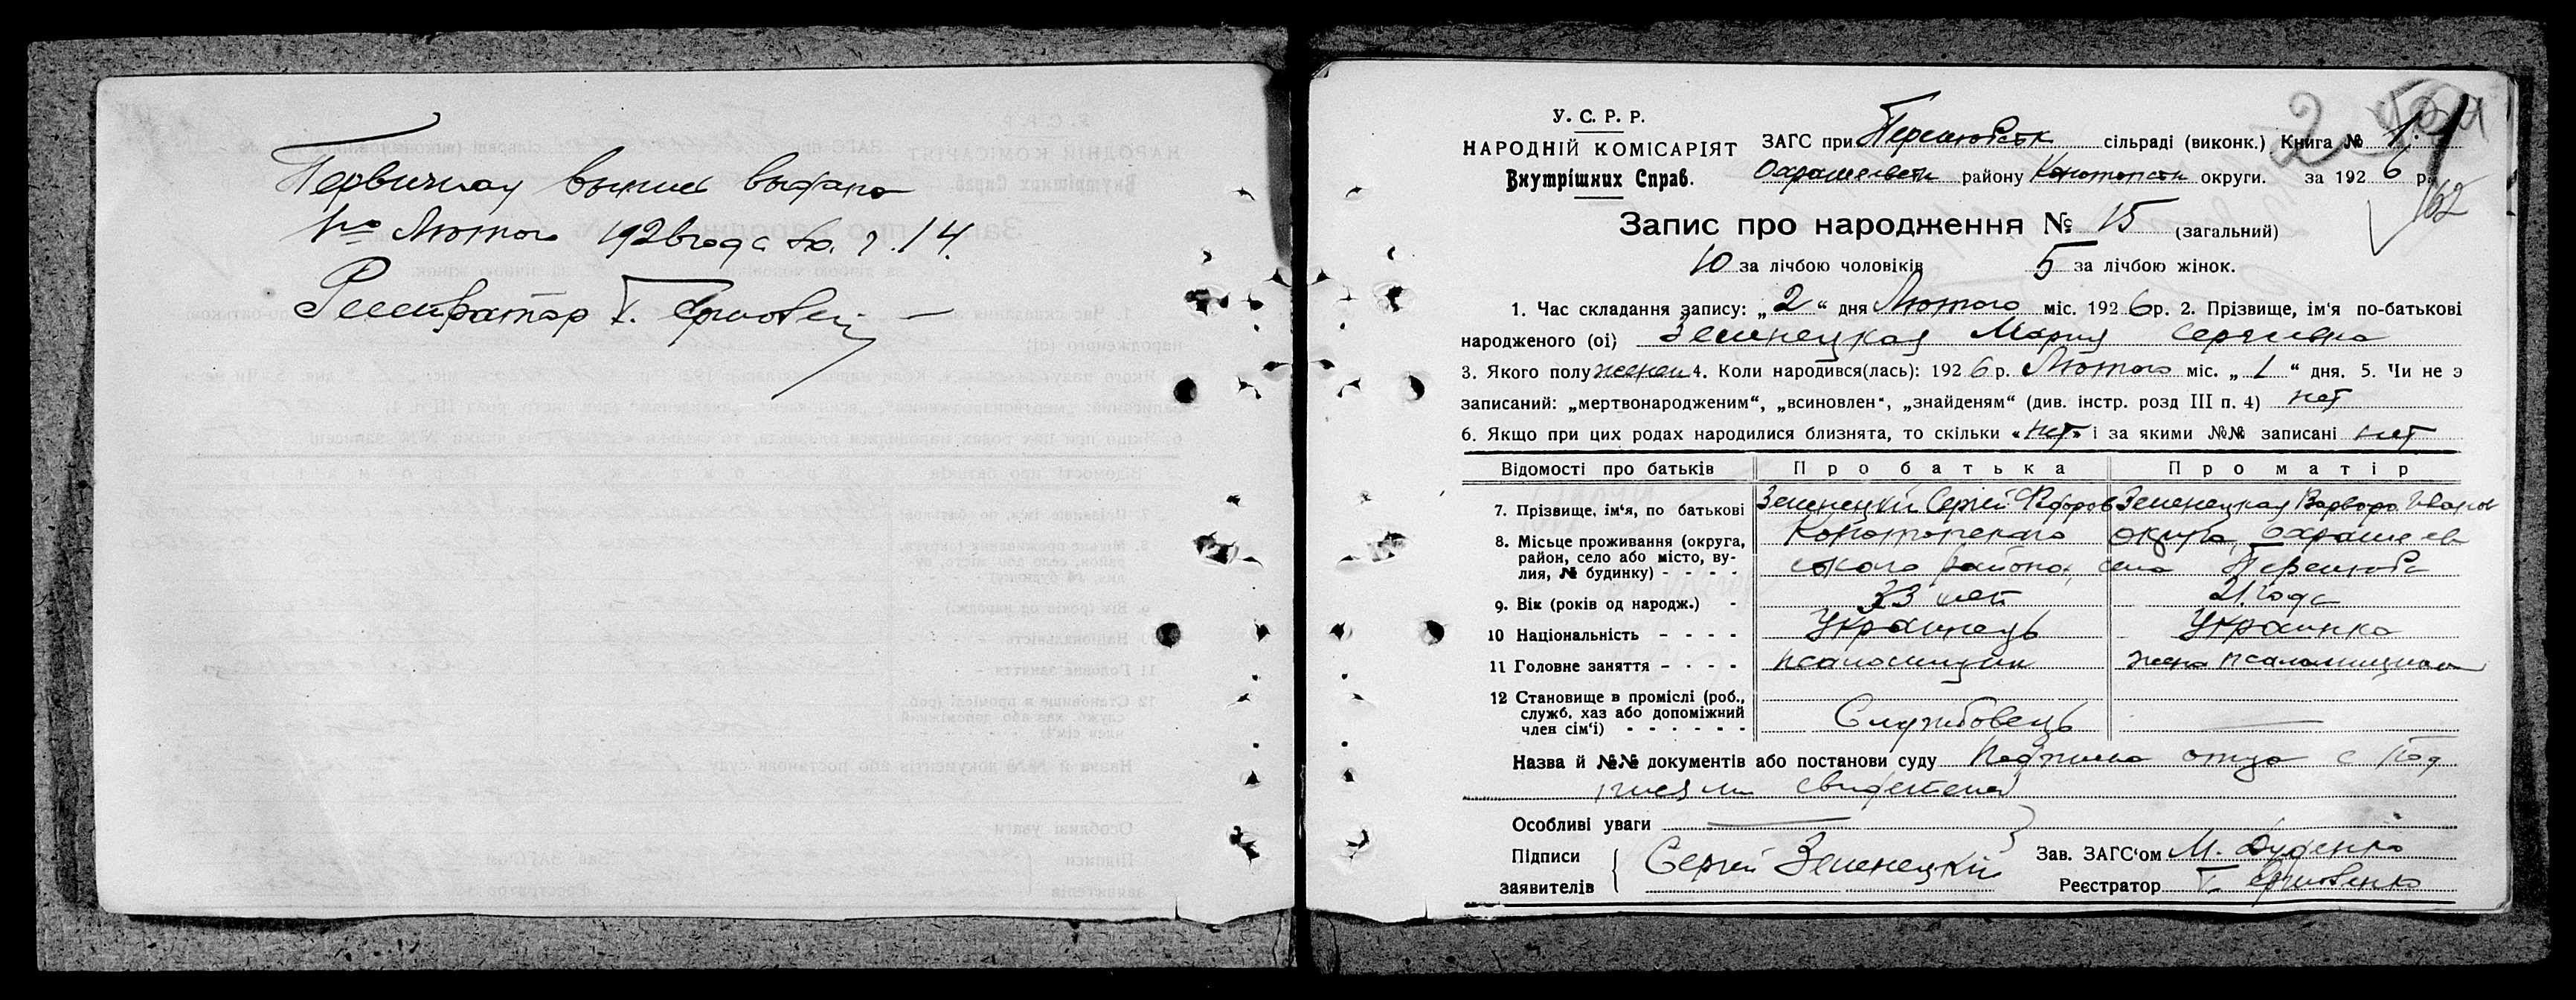 Первичная выпись выдана
1го Лютого 1926 года за № 14.
Регистратор Т. Ермовенко
У. С. Р. Р.
НАРОДНІЙ КОМІСАРІЯТ
Внутрішних Справ.
ЗАГС при сільраді (виконк.) Книга № 1
району Конотопск округи. за 1926 р.
162
Запис про народження № 15 (загальний)
10 за лічбою чоловіків 5 за лічбою жінок.
1. Час складання запису: „2“ дня Лютого міс. 1926 р. 2. Прізвище, ім'я по-батькові
народженого (ої) Зеленецкая Мария Сергиевна
3. Якого полу женск 4. Коли народився(лась): 1926 р. Лютого міс. „1“ дня. 5. Чи не э
записаний: „мертвонародженим“, „всиновлен“, „знайденям“ (див. інстр. розд III п. 4) нет
6. Якщо при цих родах народилися близнята, то скільки «нет» і за якими №№ записані нет
Відомості про батьків Про батька Про матір
7. Прізвище, ім'я, по батькові Зеленецкий Сергей Федоров Зеленецкая Варвара Иванов
8. Місьце проживання (округа, Конотопского округа,
район, село або місто, ву- ского района, села
лия, № будинку) - - - -
9. Вік (років од народж.) - 33 лет 21 года
10 Національність - - - - Украинець Украинка
11 Головне заняття - - - - псаломщик жена псаломщика
12 Становище в проміслі (роб.,
служб. хаз або допоміжний
член сім'ї) - - - - - - Службовець —
Назва й №№ документів або постанови суду отца с под
писями свидетелей
Особливі уваги —
Підписи Сергей Зеленецкий Зав. ЗАГС'ом М. Дуденко
заявителів Реєстратор Т. Ермовенко